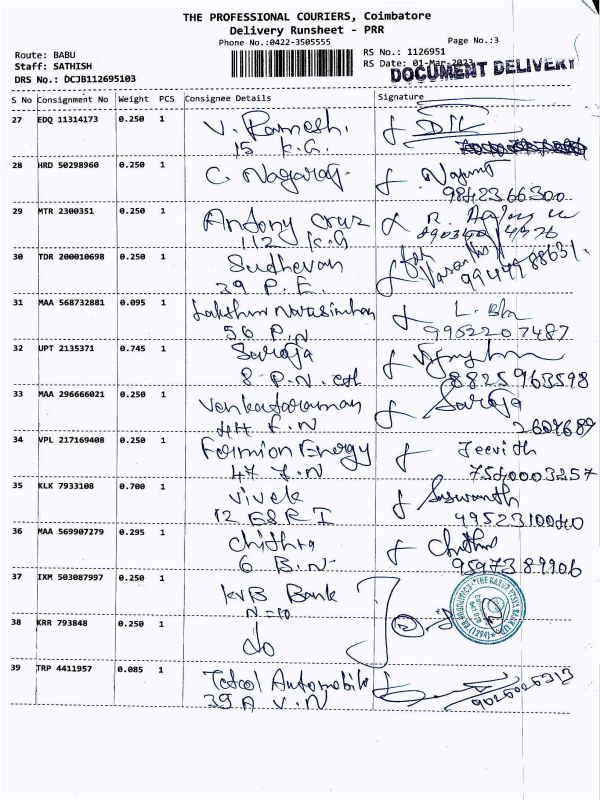 THE PROFESSIONAL COURIERS, Coimbatore
Delivery Runsheet - PRR
Phone No.:0422-3505555 Page No.:3
Route: BABU RS No.: 1126951
Staff: SATHISH RS Date: 01-Mar-2023
DRS No.: DCJB112695103 DOCUMENT DELIVERY
S No Consignment No Weight PCS Consignee Details Signature
27 EDQ 11314173 0.250 1 V. Ramesh.
15 K.G.
28 HRD 50298960 0.250 1 C. Nagaraj
9842366300
29 MTR 2300351 0.250 1 Antony Cruz R.
112 K.G
30 TDR 200010698 0.250 1 Sudhevan
39 P.F.
31 MAA 568732881 0.095 1 Lakshmi Narasimhan L.
56 P.N 9962207487
32 UPT 2135371 0.745 1 Saroja
8 P.N. 8825963598
33 MAA 296666021 0.250 1 Venkataraman Saroja
44 F.N 2604689
34 VPL 217169408 0.250 1 Formion Energy Jeevith
47 J.N 7540003257
35 KLK 7933108 0.700 1 Vivek
12 E.S.R.I
36 MAA 569907279 0.295 1 Chithra
6 B.N. 9597389906
37 IXM 503087997 0.250 1 KVB Bank
N-10
38 KRR 793848 0.250 1 do
39 TRP 4411957 0.085 1 Automobile
39 A V.N